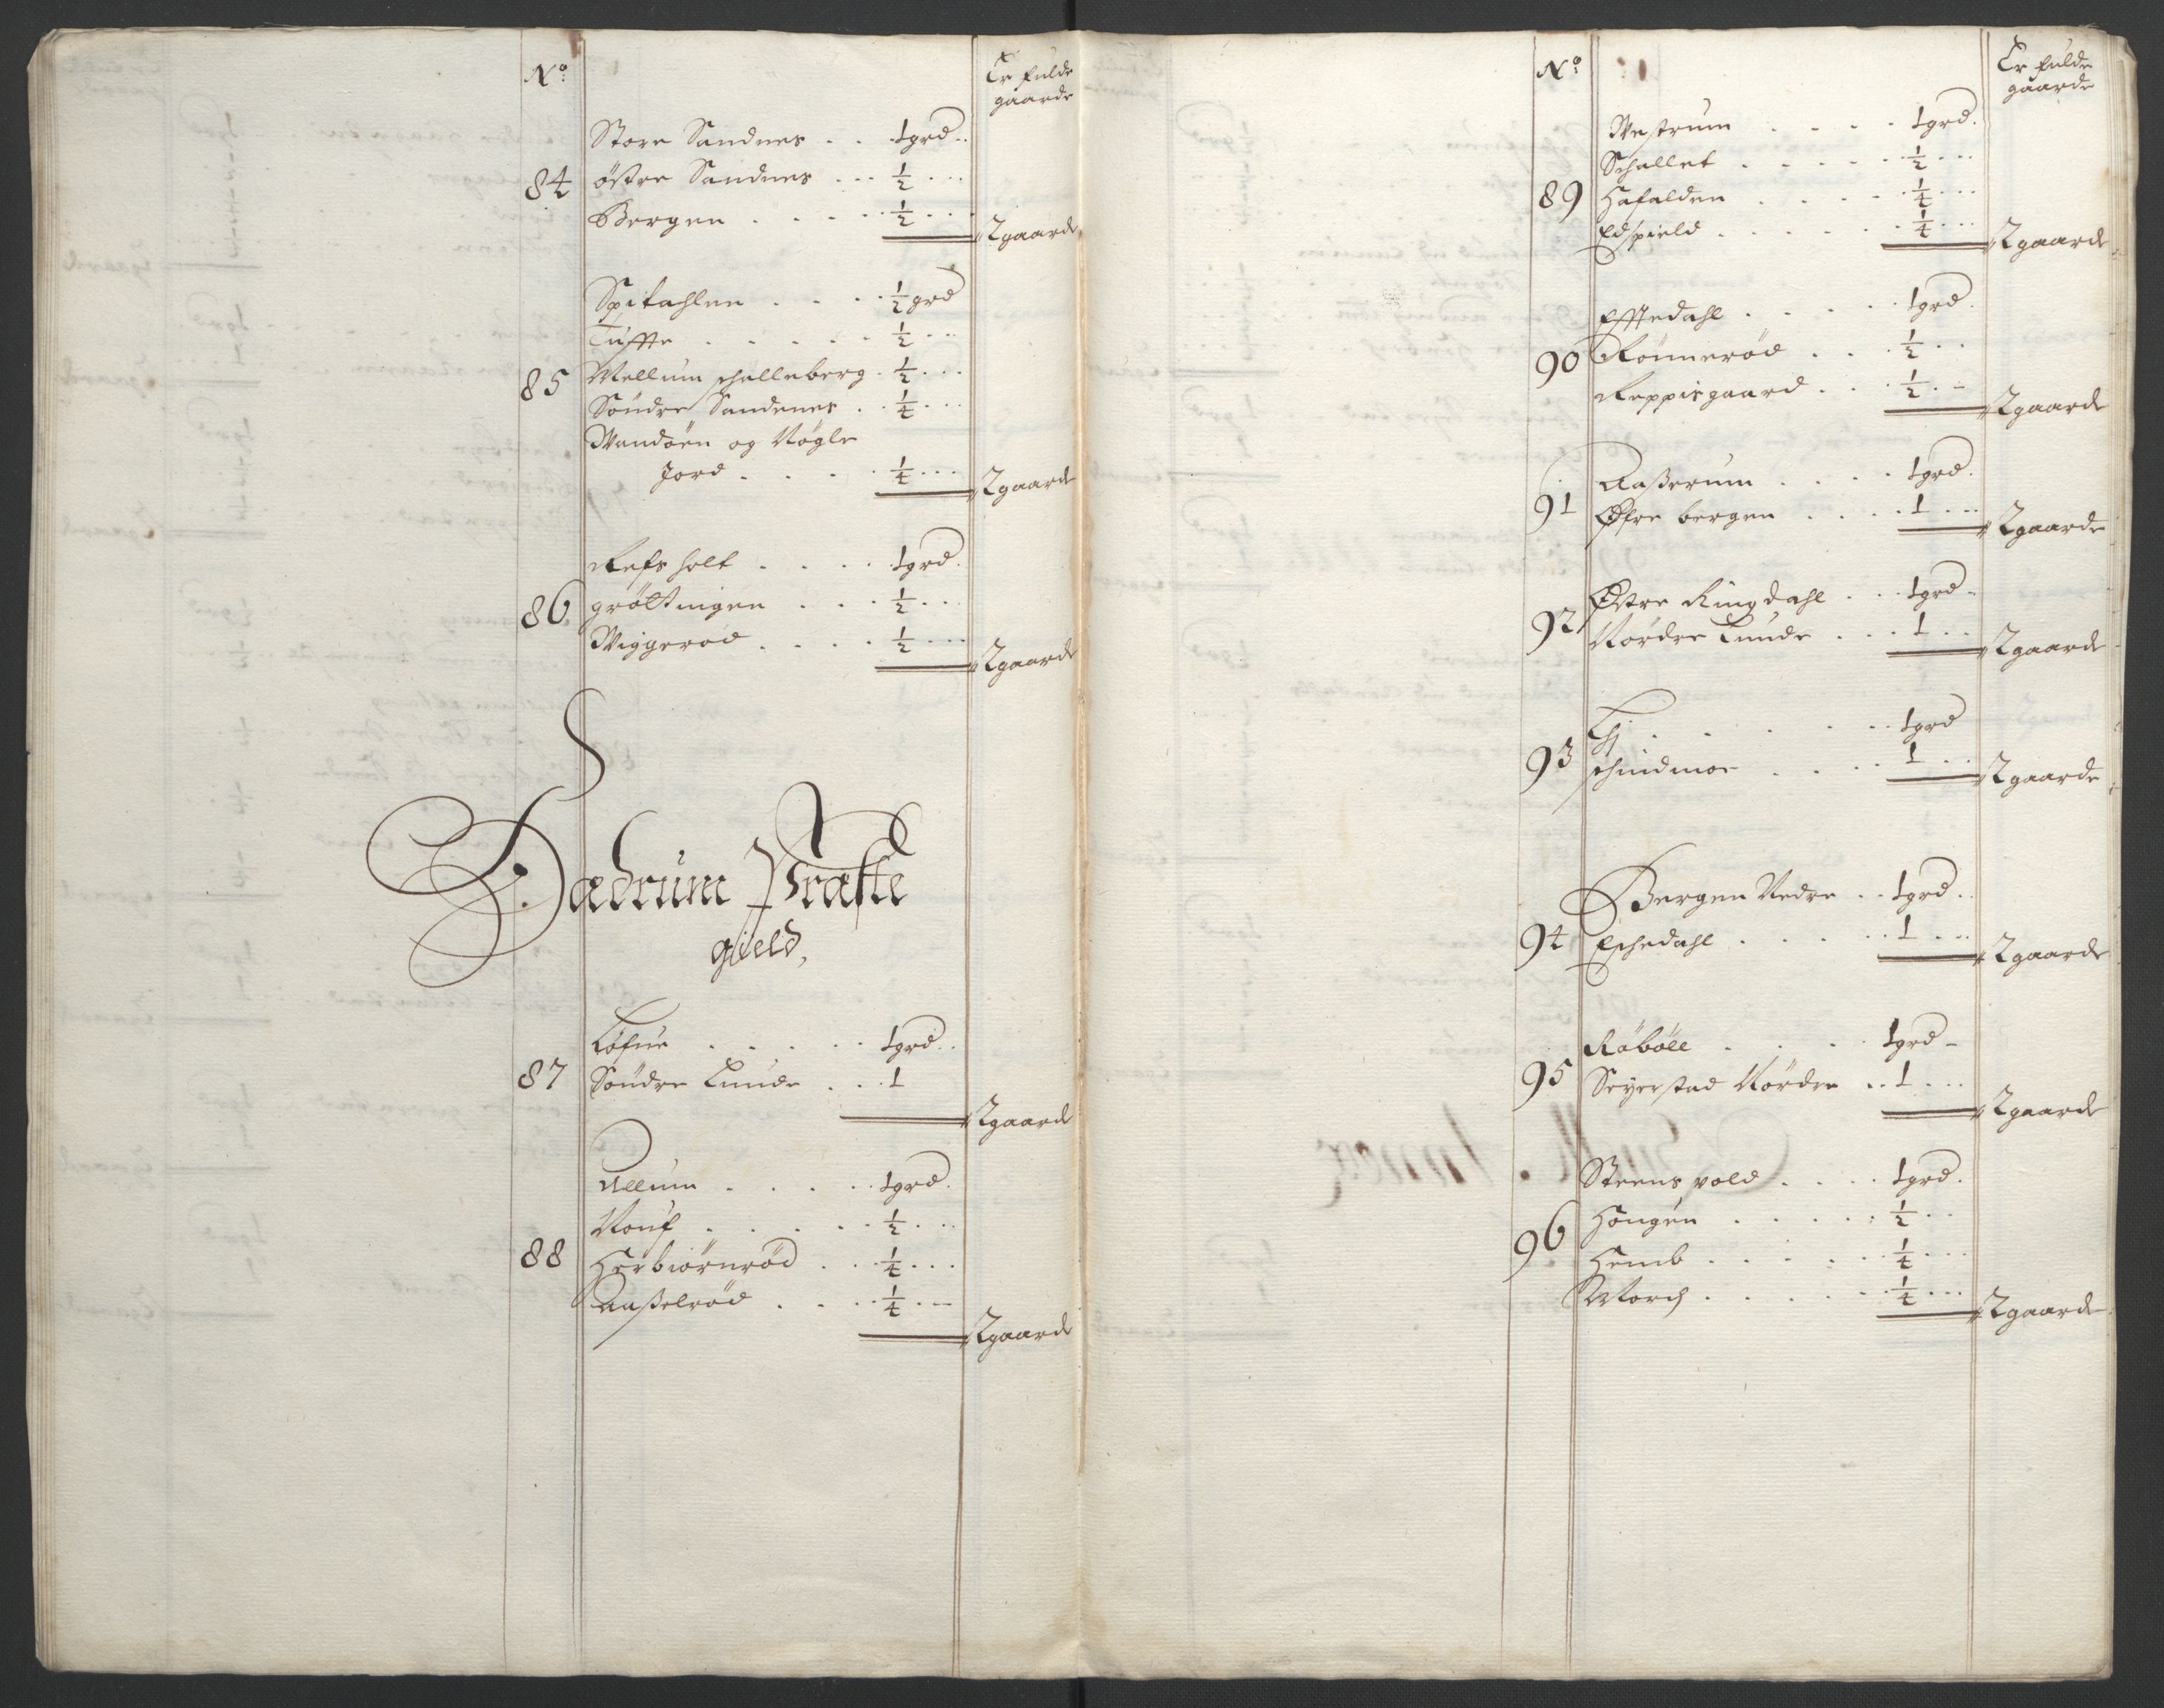 No
Er fulde
gaarde
Store Sandnes . . . 1 grd ..
84 östre Sandnes . . . ½ . . .
Bergen . . . . . ½ . . .
2 gaarde
Spitahlen . . . . ½ grd
Tuffte . . . . . ½ . . .
85 Mellum schalleberg . ½ . . .
Söndre Sandenes . . ¼ . . .
Wandöen og Nögle
Jord . . . . . ¼ . . .
2 gaarde
Refsholt . . . . 1 grd.
86 gröltingen . . . ½ . . .
Wiggeröd . . . . ½ . . .
2 gaarde
Sædrum Præste
gield,
Löfue . . . . . 1 grd ..
87 Söndre Lunde . . . 1
2 gaarde
Allum . . . . . 1 grd.
Nouf . . . . . ½ . . .
88 Herbiörnröd . . . ¼ . . .
Aasselröd . . . . ¼ . . .
2 gaarde
No
Er fulde
gaarde
Westrum . . . . 1 grd.
Schallet . . . . . ½ . . .
89 Hafalden . . . . ¼ . . .
Edspield . . . . . ¼ . . .
2 gaarde
Efftedahl . . . . . 1 grd.
90 Rönneröd . . . ½ . . .
Reppisgaard . . . ½ . .
2 gaarde
Aasserum . . . . 1 grd.
91 Øfre bergen . . . . 1 . . .
2 gaarde
Østre Ringdahl . . . 1 grd -
92 Nördre Lunde . . . 1 . . .
2 gaarde
Lij . . . . . . 1 grd
93 schindmoe . . . . 1 . . .
2 gaarde
Bergen Nedre . . 1 grd ..
94 Eschedahl . . . . . 1 . . .
2 gaarde
Röböll . . . . 1 grd -
95 Seyerstad Nördre . . 1 . . .
2 gaarde
Steensvold . . . . 1 grd.
96 Hougen . . . . . ½ . .
Hemb . . . . . ¼ . . .
Morch . . . . . ¼ . . .
2 gaarde